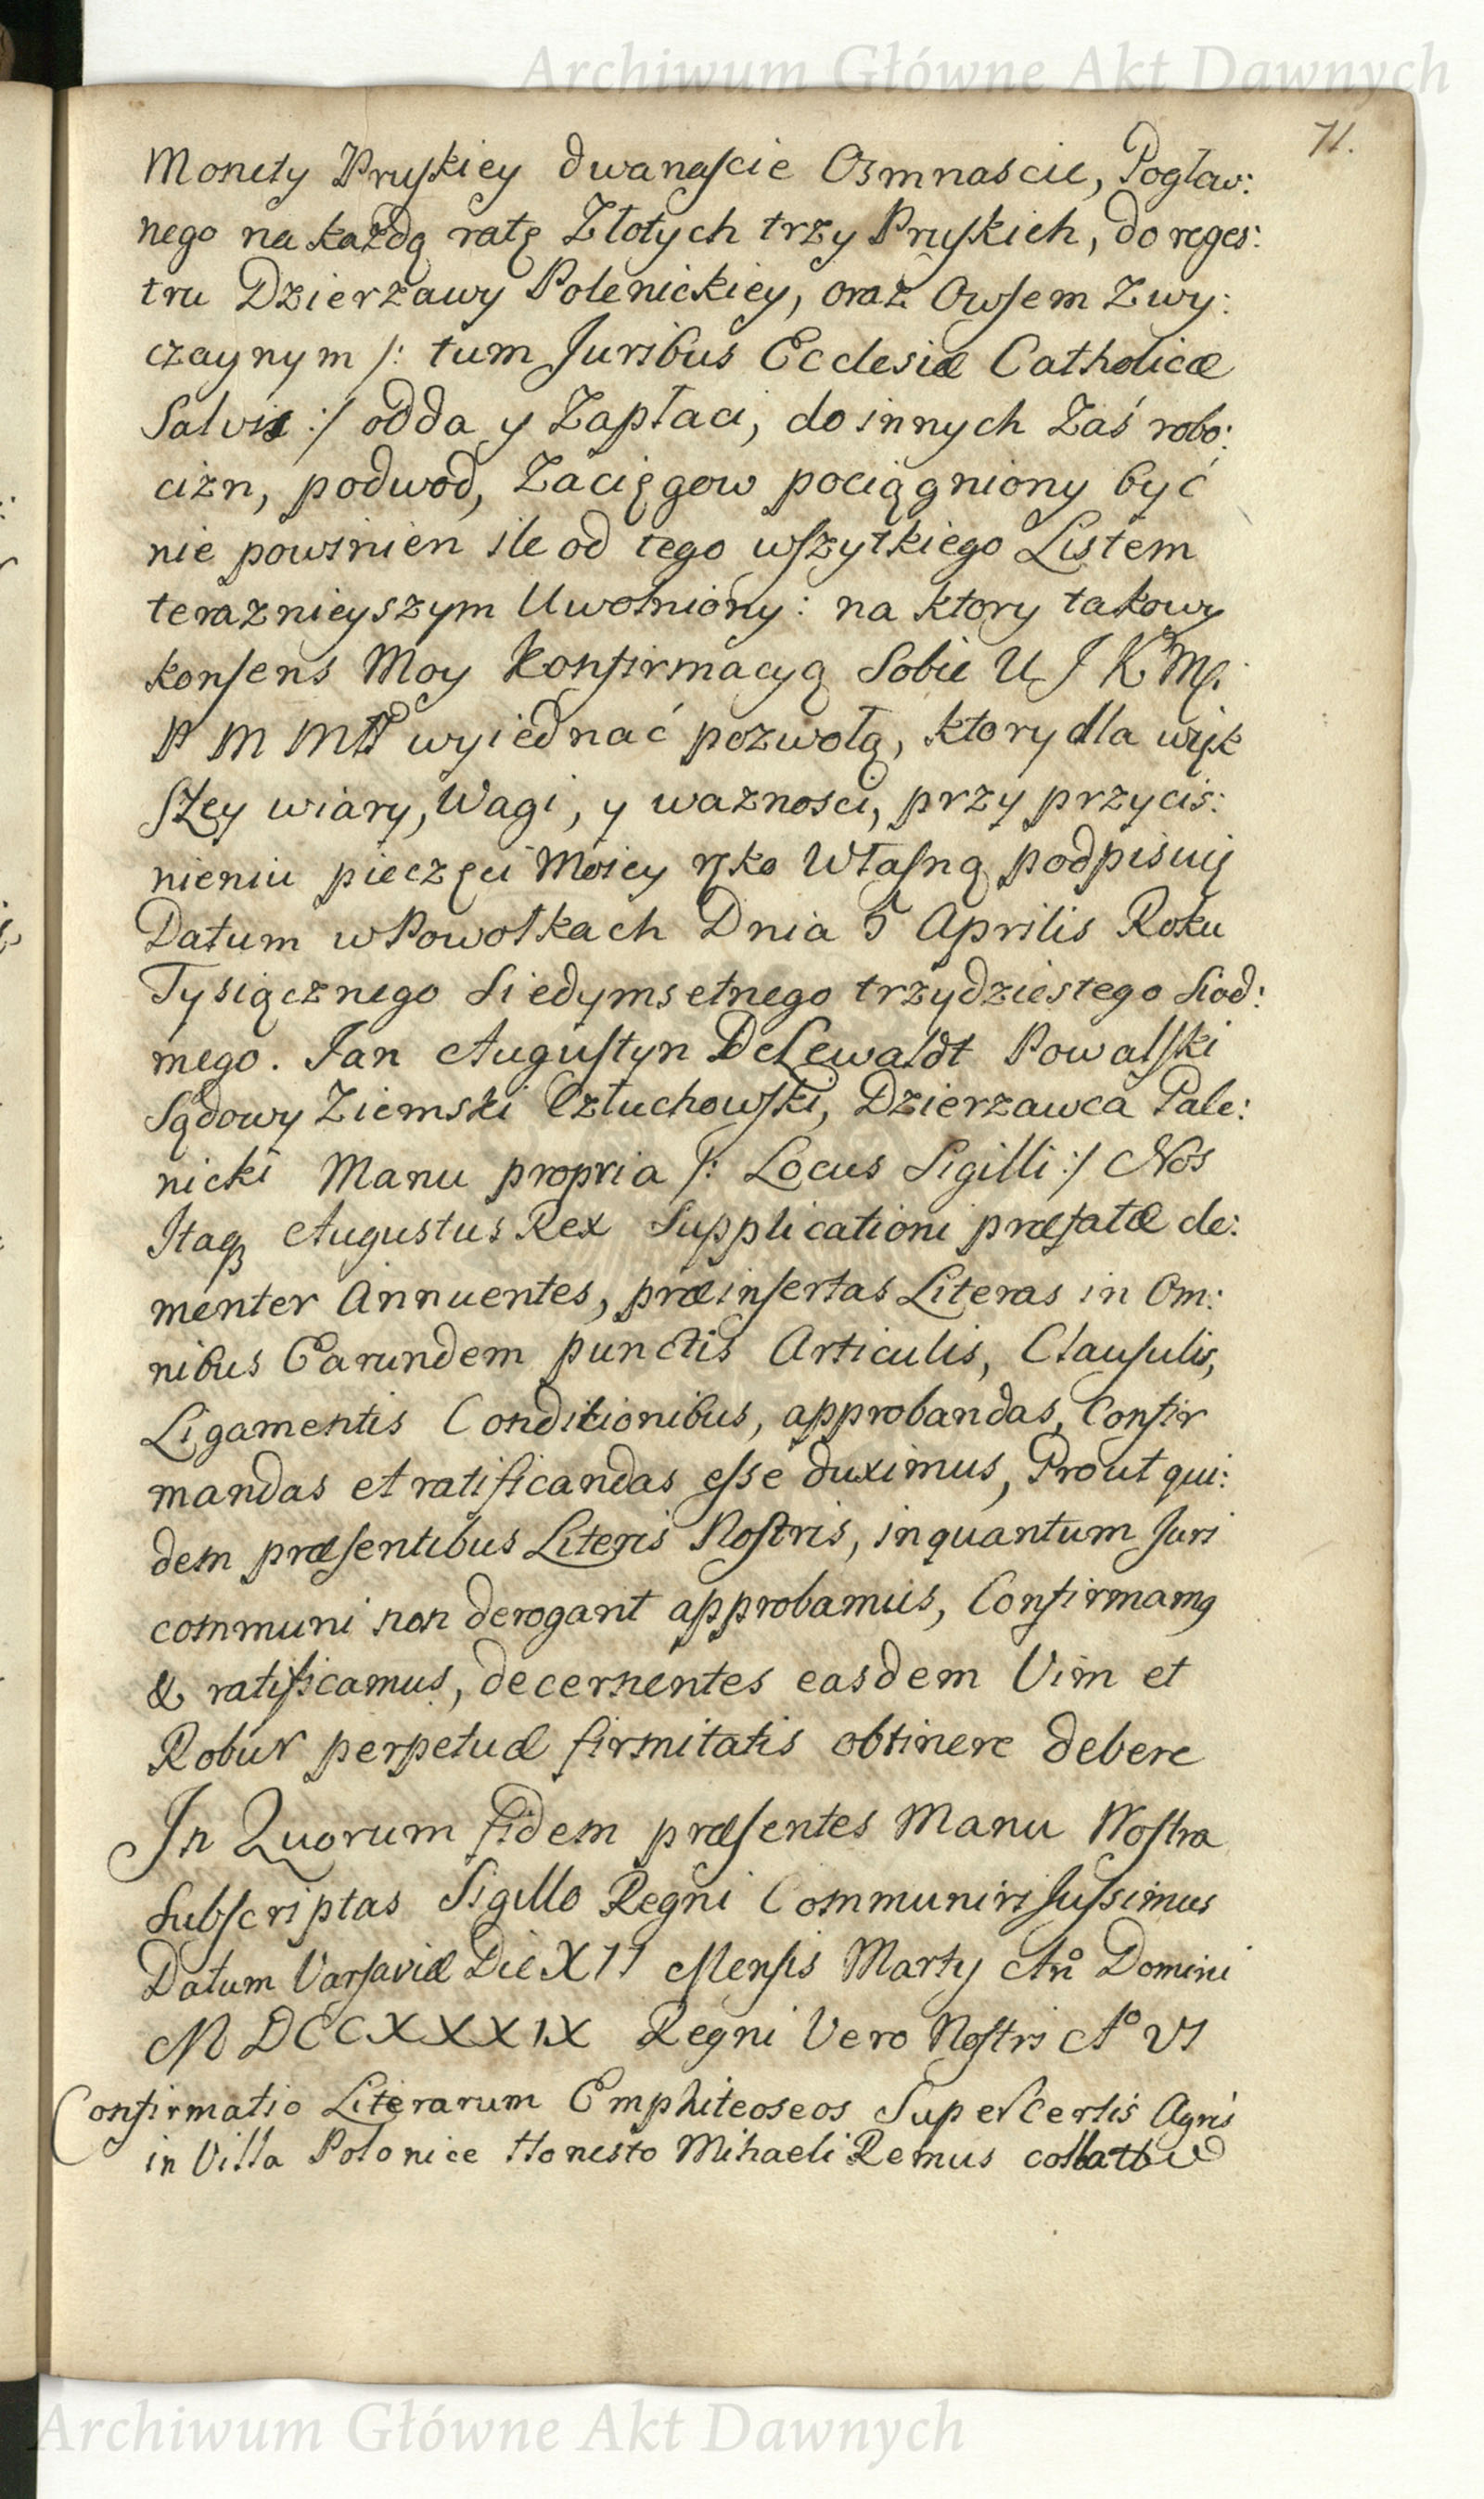 Archiwum Główne Akt Dawnych
71.
Monety Pruskiey dwanaście Osmnascie, Pogław:
nego na każdą ratę Złotych trzy Pruskich, do reges:
tru Dzierzawy Polenickiey, oraz Owsem Zwy:
czaynym /: tum Juribus Ecclesiæ Catholicæ
Salvis :/ odda y Zapłaci, do innych Zaś robo:
cizn, podwod, Zacięgow pociągniony być
nie powinien ile od tego wszytkiego Listem
teraznieyszym Uwolniony: na ktory takowy
konsens Moy Konfirmacyą Sobie U J K Mci
P M MP wyiednać pozwolą, ktory dla więk
szey wiary, Wagi, y wazności, przy przycis:
nieniu pieczęci Moiey ręko Własną podpisuię
Datum w Powołkach Dnia 5 Aprilis Roku
Tysiącznego Siedymsetnego trzydziestego Siod:
mego. Jan Augustyn DeLewaldt Powalski
Sądowy Ziemski Człuchowski, Dzierzawca Pale:
nicki Manu propria /: Locus Sigilli :/ Nos
Itaq Augustus Rex Supplicationi præfatæ cle:
menter Annuentes, præinsertas Literas in Om:
nibus Earundem punctis Articulis, Clausulis,
Ligamentis Conditionibus, approbandas, Confir
mandas et ratificandas esse duximus, Prout qui:
dem præsentibus Literis Nostris, inquantum Juri
communi non derogant approbamus, Confirmamq
& ratificamus, decernentes easdem Vim et
Robur perpetuæ firmitatis obtinere debere
In Quorum fidem præsentes Manu Nostra
Subscriptas Sigillo Regni Communiri Jussimus
Datum Varsaviæ Die XII Mensis Marty Añо Domini
MDCCXXXIX Regni Vero Nostri Aº VI
Confirmatio Literarum Emphiteoseos Super Certis Agris
in Villa Polonice Honesto Mihaeli Remus collatt
Archiwum Główne Akt Dawnych